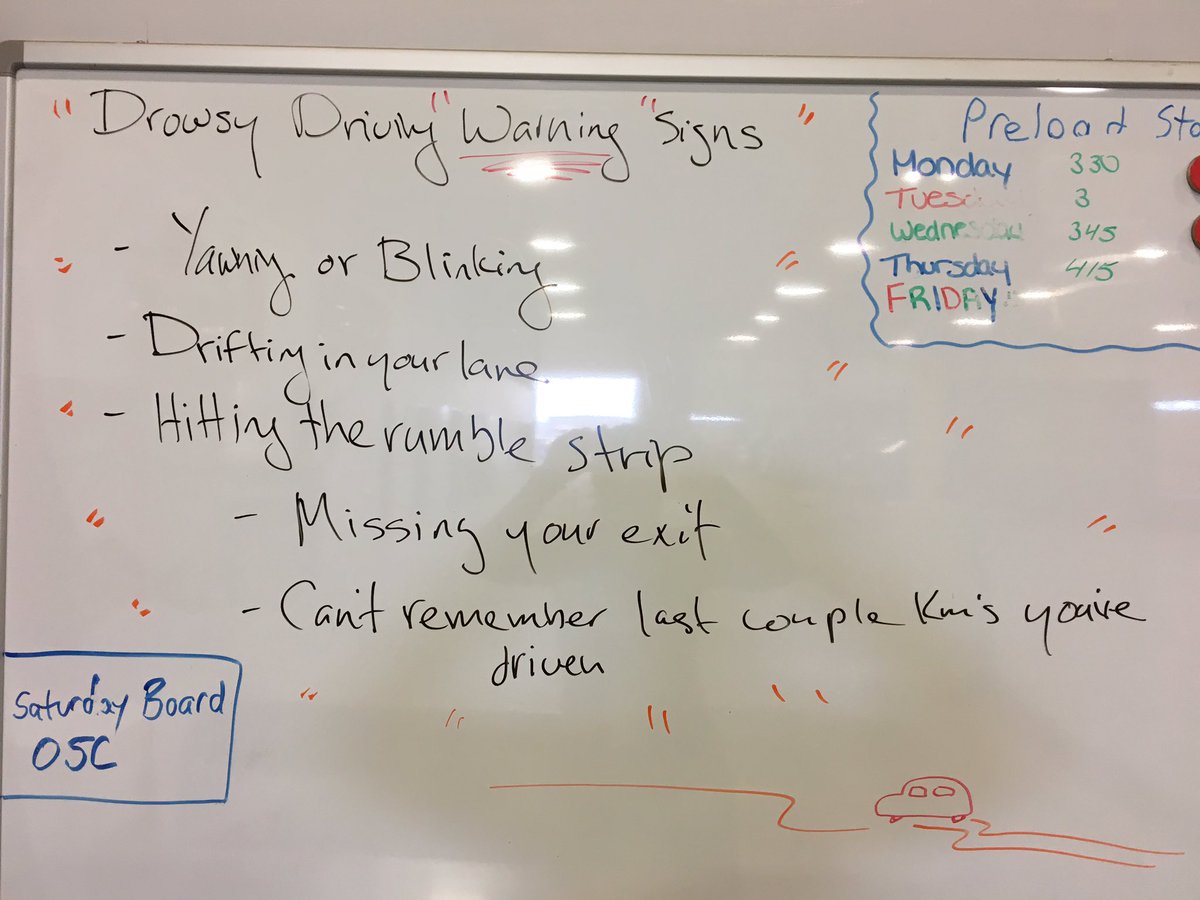 "Drowsy Driving" Warning "Signs"
- Yawning or Blinking
- Drifting in your lane
- Hitting the rumble strip
- Missing your exit
- Can't remember last couple Km's you've
driven
Preload Sta
Monday 330
Tuesday 3
Wednesday 345
Thursday 415
FRIDAY
Saturday Board
OSC